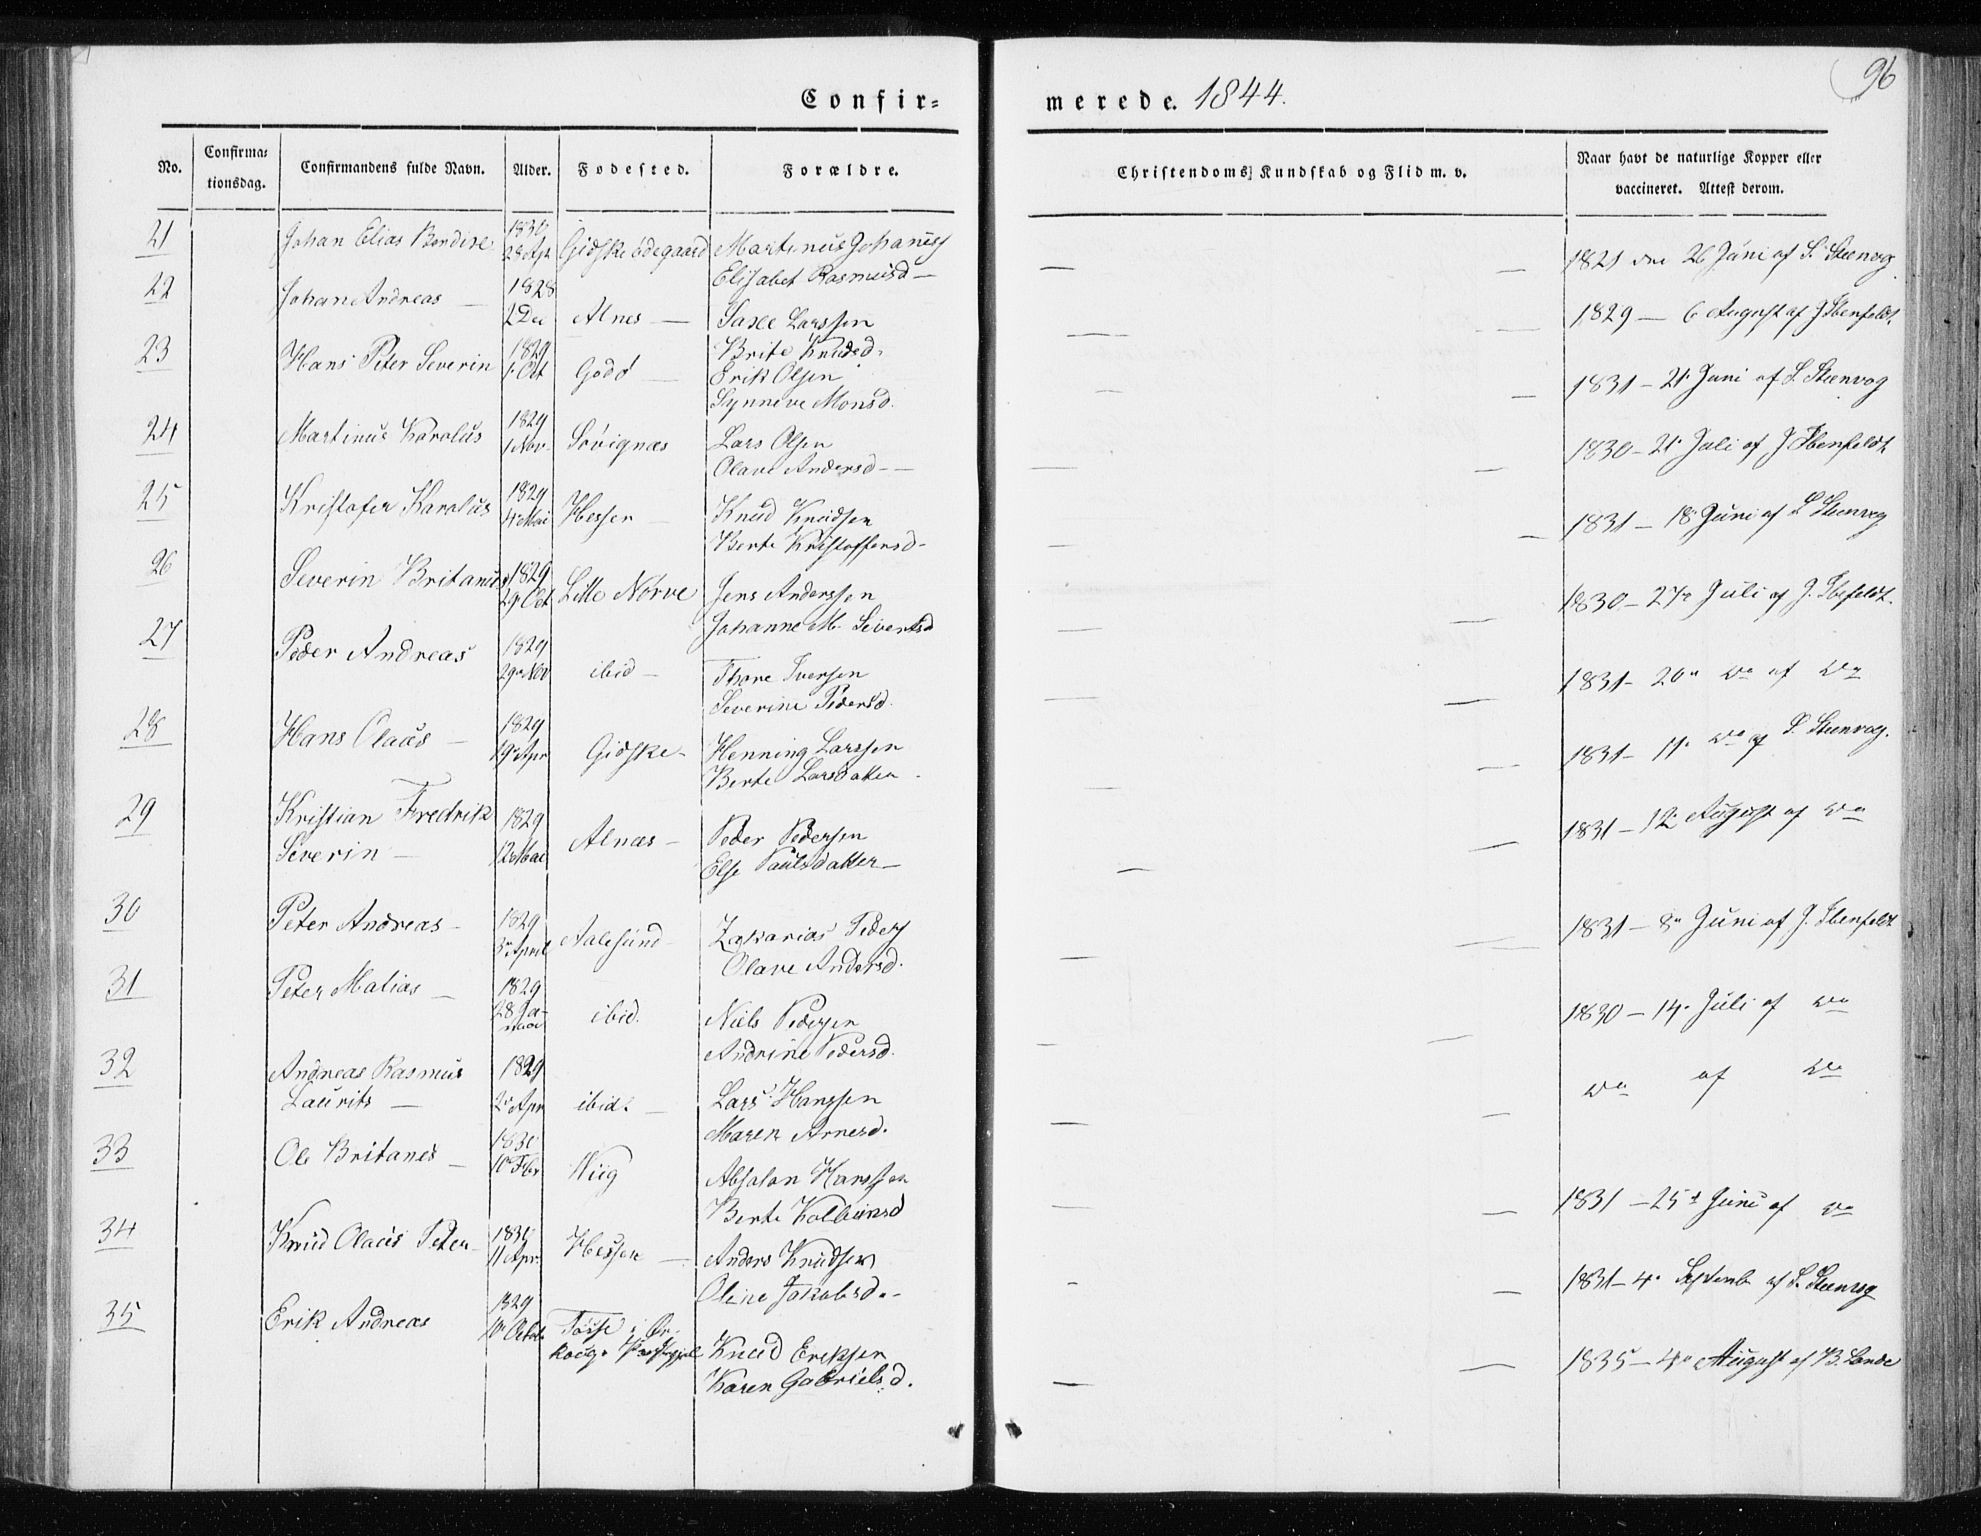 96
Confir-
merede. 1844.
No.
Confirma-
tionsdag.
Confirmandens fulde Navn.
Alder.
Fødested.
Forældre.
Christendoms Kundskab og Flid m. v.
Naar havt de naturlige Kopper eller
vaccineret. Attest derom.
21 Johan Elias Berdine 1830 28 Apr Gidske ødegaard Martinus Johaness
Elisabet Rasmusd — 1821 den 26 Juni af S. Steenvog
22 Johan Andreas — 1828 2 Dec Alnes — Saxe Larssen
Brite Knudsd. 1829 — 6 August af J Ibenfeldt
23 Hans Peter Severin 1829 1 Oct Godø — Erik Olsen
Synneve Monsd. 1831 — 21 Juni af S. Steenvog
24 Martinus Karolus 1829 1 Nov. Søvignæs Lars Olsen
Olave Andersd — 1830 — 21 Juli af J Ibenfeldt
25 Kristofer Karolus 1829 4 Mai Hessen — Knud Knudsen
Berte Kristoffersd — 1831 — 18 Juni af S Steenvog
26 Severin Britanus 1829 29 Oct Lille Nørve Jens Anderssen
Johanne M. Sivertsd 1830 — 27 Juli af J. Ibefeldt.
27 Peder Andreas 1829 29 Nov ibid — Thore Iversen
Severine Pedersd. 1831 — 20 do af do
28 Hans Olaus — 1829 19 Apr Gidske — Henning Larssen
Berte Larsdatter. 1831 — 11 do af S. Steenvog.
29 Kristian Fredrik
Severin — 1829 12 Mai Alnæs — Peder Pedersen
Else Paulsdatter — 1831 — 12 August af do
30 Peter Andreas — 1829 3 April Aalesund — Zakarias Peders
Olave Andersd. 1831 — 8 Juni af J. Ibenfeldt
31 Peter Matias — 1829 28 Ja- ibid. Niels Pedersen
Andrine Pedersd. 1830 — 14 Juli af do
32 Andreas Rasmus
Laurits — 1829 2 Apr ibid. — Lars Hanssen
Maren Arnesd. do af do
33 Ole Britanes — 1830 10 Febr Wiig Absalon Hanssen
Berte Kolbeinsd 1831 — 25 Juni af do
34 Knud Olaus Peter — 1830 11 Apr. Hessen — Anders Knudsen
Oline Jakobsd. — 1831 — 4 Septemb af S. Steenvog
35 Erik Andreas 1829 Præstegjel Knud Eriksen
Karen Gabrielsd. 1835 — 4 August af B. Lande